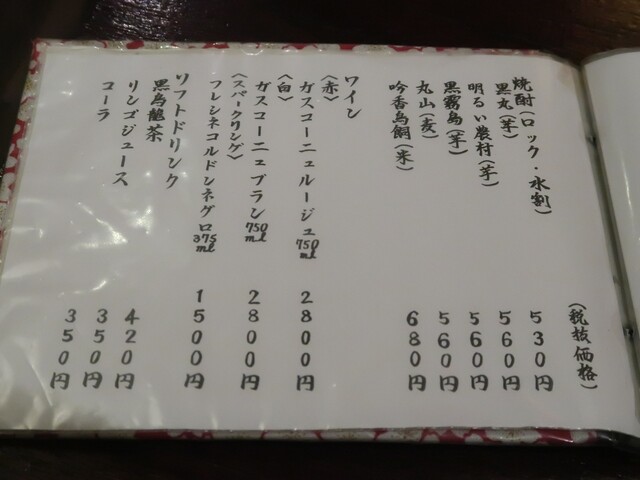 (税抜価格)
焼酎(ロック・水割)
黒丸(芋) 530円
明るい農村(芋) 560円
黒霧島(芋) 560円
丸山(麦) 560円
吟香鳥飼(米) 680円
ワイン
〈赤〉
ガスコーニュルージュ 750ml 2800円
〈白〉
ガスコーニュブラン 750ml 2800円
〈スパークリング〉
フレシネコルドンネグロ 375ml 1500円
ソフトドリンク
黒烏龍茶 420円
リンゴジュース 350円
コーラ 350円